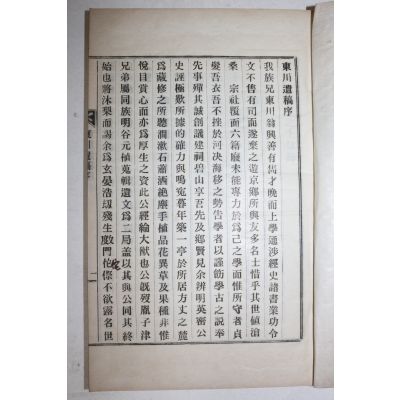 東川遺稿序
我族兄東川翁興善有嵩才晩而上學通涉經史諸書業功令
文不售有司而遂棄之遊京鄉所與友多名士惜乎其世値滄
桑 宗社覆面六籍廢未能專力於爲己之學而惟所守者貞
髮吾衣吾不挫於河决海移之勢告學者以謹飭學古之說奉
先事殫其誠創議建祠碧山享吾先及鄉賢見余辨明英密公
史誣極歎所據的確力與鳴寃暮年築一亭於所居方丈之麓
爲藏修之所聽澗漱石蕭洒絶塵手植品花異草及果種非惟
悅目賞心而亦爲厚生之資此公經綸大猷也公旣歿胤子津
兄弟屬同族明谷元植蒐輯遺文爲二局盖以其與公同其終
始也將沐梨而謁余爲玄晏浩劫殘生敗門伈傺不欲露名世